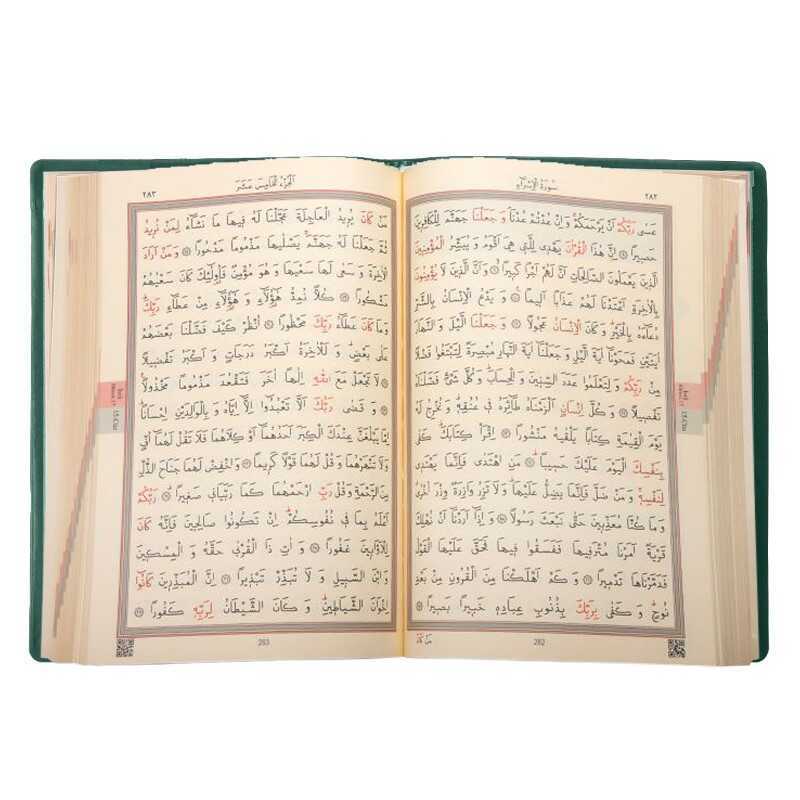 سُورَةُ الْإِسْرَاءِ
٢٨٢
عَسٰى رَبُّكُمْ اَنْ يَرْحَمَكُمْ وَاِنْ عُدْتُمْ عُدْنَا وَجَعَلْنَا جَهَنَّمَ لِلْكَافِرِينَ
حَصِيرًا ۝ اِنَّ هٰذَا الْقُرْاٰنَ يَهْدِي لِلَّتِي هِيَ اَقْوَمُ وَيُبَشِّرُ الْمُؤْمِنِينَ
الَّذِينَ يَعْمَلُونَ الصَّالِحَاتِ اَنَّ لَهُمْ اَجْرًا كَبِيرًا ۝ وَاَنَّ الَّذِينَ لَا يُؤْمِنُونَ
بِالْاٰخِرَةِ اَعْتَدْنَا لَهُمْ عَذَابًا اَلِيمًا ۝ وَيَدْعُ الْاِنْسَانُ بِالشَّرِّ
دُعَاءَهُ بِالْخَيْرِ وَكَانَ الْاِنْسَانُ عَجُولًا ۝ وَجَعَلْنَا الَّيْلَ وَالنَّهَارَ
اٰيَتَيْنِ فَمَحَوْنَا اٰيَةَ الَّيْلِ وَجَعَلْنَا اٰيَةَ النَّهَارِ مُبْصِرَةً لِتَبْتَغُوا فَضْلًا
مِنْ رَبِّكُمْ وَلِتَعْلَمُوا عَدَدَ السِّنِينَ وَالْحِسَابَ وَكُلَّ شَيْءٍ فَصَّلْنَاهُ
تَفْصِيلًا ۝ وَكُلَّ اِنْسَانٍ اَلْزَمْنَاهُ طَائِرَهُ فِي عُنُقِهِ وَنُخْرِجُ لَهُ
يَوْمَ الْقِيٰمَةِ كِتَابًا يَلْقٰيهُ مَنْشُورًا ۝ اِقْرَأْ كِتَابَكَ كَفٰى
بِنَفْسِكَ الْيَوْمَ عَلَيْكَ حَسِيبًا ۝ مَنِ اهْتَدٰى فَاِنَّمَا يَهْتَدِي
لِنَفْسِهِ وَمَنْ ضَلَّ فَاِنَّمَا يَضِلُّ عَلَيْهَا وَلَا تَزِرُ وَازِرَةٌ وِزْرَ اُخْرٰى
وَمَا كُنَّا مُعَذِّبِينَ حَتّٰى نَبْعَثَ رَسُولًا ۝ وَاِذَا اَرَدْنَا اَنْ نُهْلِكَ
قَرْيَةً اَمَرْنَا مُتْرَفِيهَا فَفَسَقُوا فِيهَا فَحَقَّ عَلَيْهَا الْقَوْلُ
فَدَمَّرْنَاهَا تَدْمِيرًا ۝ وَكَمْ اَهْلَكْنَا مِنَ الْقُرُونِ مِنْ بَعْدِ
نُوحٍ وَكَفٰى بِرَبِّكَ بِذُنُوبِ عِبَادِهِ خَبِيرًا بَصِيرًا ۝
مَنْ كَانَ
282
15.Cüz
اَلْجُزْءُ الْخَامِسَ عَشَرَ
٢٨٣
مَنْ كَانَ يُرِيدُ الْعَاجِلَةَ عَجَّلْنَا لَهُ فِيهَا مَا نَشَاءُ لِمَنْ نُرِيدُ
ثُمَّ جَعَلْنَا لَهُ جَهَنَّمَ يَصْلٰيهَا مَذْمُومًا مَدْحُورًا ۝ وَمَنْ اَرَادَ
الْاٰخِرَةَ وَسَعٰى لَهَا سَعْيَهَا وَهُوَ مُؤْمِنٌ فَاُولٰئِكَ كَانَ سَعْيُهُمْ
مَشْكُورًا ۝ كُلًّا نُمِدُّ هٰؤُلَاءِ وَهٰؤُلَاءِ مِنْ عَطَاءِ رَبِّكَ
وَمَا كَانَ عَطَاءُ رَبِّكَ مَحْظُورًا ۝ اُنْظُرْ كَيْفَ فَضَّلْنَا بَعْضَهُمْ
عَلٰى بَعْضٍ وَلَلْاٰخِرَةُ اَكْبَرُ دَرَجَاتٍ وَاَكْبَرُ تَفْضِيلًا
۝ لَا تَجْعَلْ مَعَ اللّٰهِ اِلٰهًا اٰخَرَ فَتَقْعُدَ مَذْمُومًا مَخْذُولًا
۝ وَقَضٰى رَبُّكَ اَلَّا تَعْبُدُوا اِلَّا اِيَّاهُ وَبِالْوَالِدَيْنِ اِحْسَانًا
اِمَّا يَبْلُغَنَّ عِنْدَكَ الْكِبَرَ اَحَدُهُمَا اَوْ كِلَاهُمَا فَلَا تَقُلْ لَهُمَا اُفٍّ
وَلَا تَنْهَرْهُمَا وَقُلْ لَهُمَا قَوْلًا كَرِيمًا ۝ وَاخْفِضْ لَهُمَا جَنَاحَ الذُّلِّ
مِنَ الرَّحْمَةِ وَقُلْ رَبِّ ارْحَمْهُمَا كَمَا رَبَّيَانِي صَغِيرًا ۝ رَبُّكُمْ
اَعْلَمُ بِمَا فِي نُفُوسِكُمْ اِنْ تَكُونُوا صَالِحِينَ فَاِنَّهُ كَانَ
لِلْاَوَّابِينَ غَفُورًا ۝ وَاٰتِ ذَا الْقُرْبٰى حَقَّهُ وَالْمِسْكِينَ
وَابْنَ السَّبِيلِ وَلَا تُبَذِّرْ تَبْذِيرًا ۝ اِنَّ الْمُبَذِّرِينَ كَانُوا
اِخْوَانَ الشَّيَاطِينِ وَكَانَ الشَّيْطَانُ لِرَبِّهِ كَفُورًا ۝
283
15.Cüz